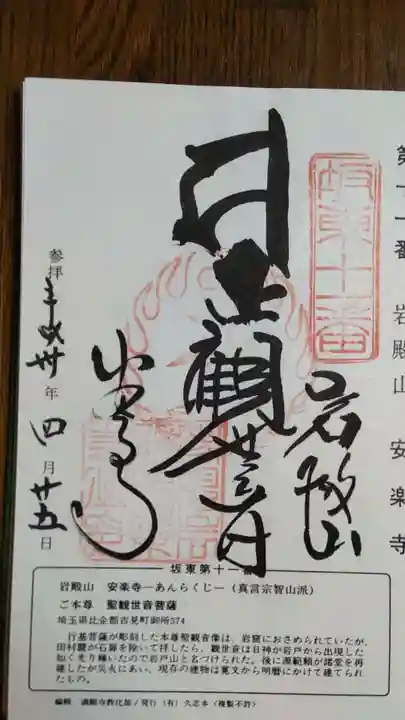 第十一番 岩殿山 安楽寺
坂東十一番
岩殿山
聖観世音
参拝 平成卅年四月廿五日
坂東第十一番
岩殿山 安楽寺―あんらくじ―(真言宗智山派)
ご本尊 聖観世音菩薩
埼玉県比企郡吉見町御所374
行基菩薩が彫刻した本尊聖観音像は、岩窟におさめられていたが、
田村麿が石扉を除いて拝したら、観世音は日神が岩戸から出現した
如く光り輝いたので岩戸山と名づけられた。後に源範頼が諸堂を再
建したが災火にあい、現存の建物は寛文から明暦にかけて建てられ
たもの。
編輯 満願寺教化部/発行(有)久志本〈複製不許〉